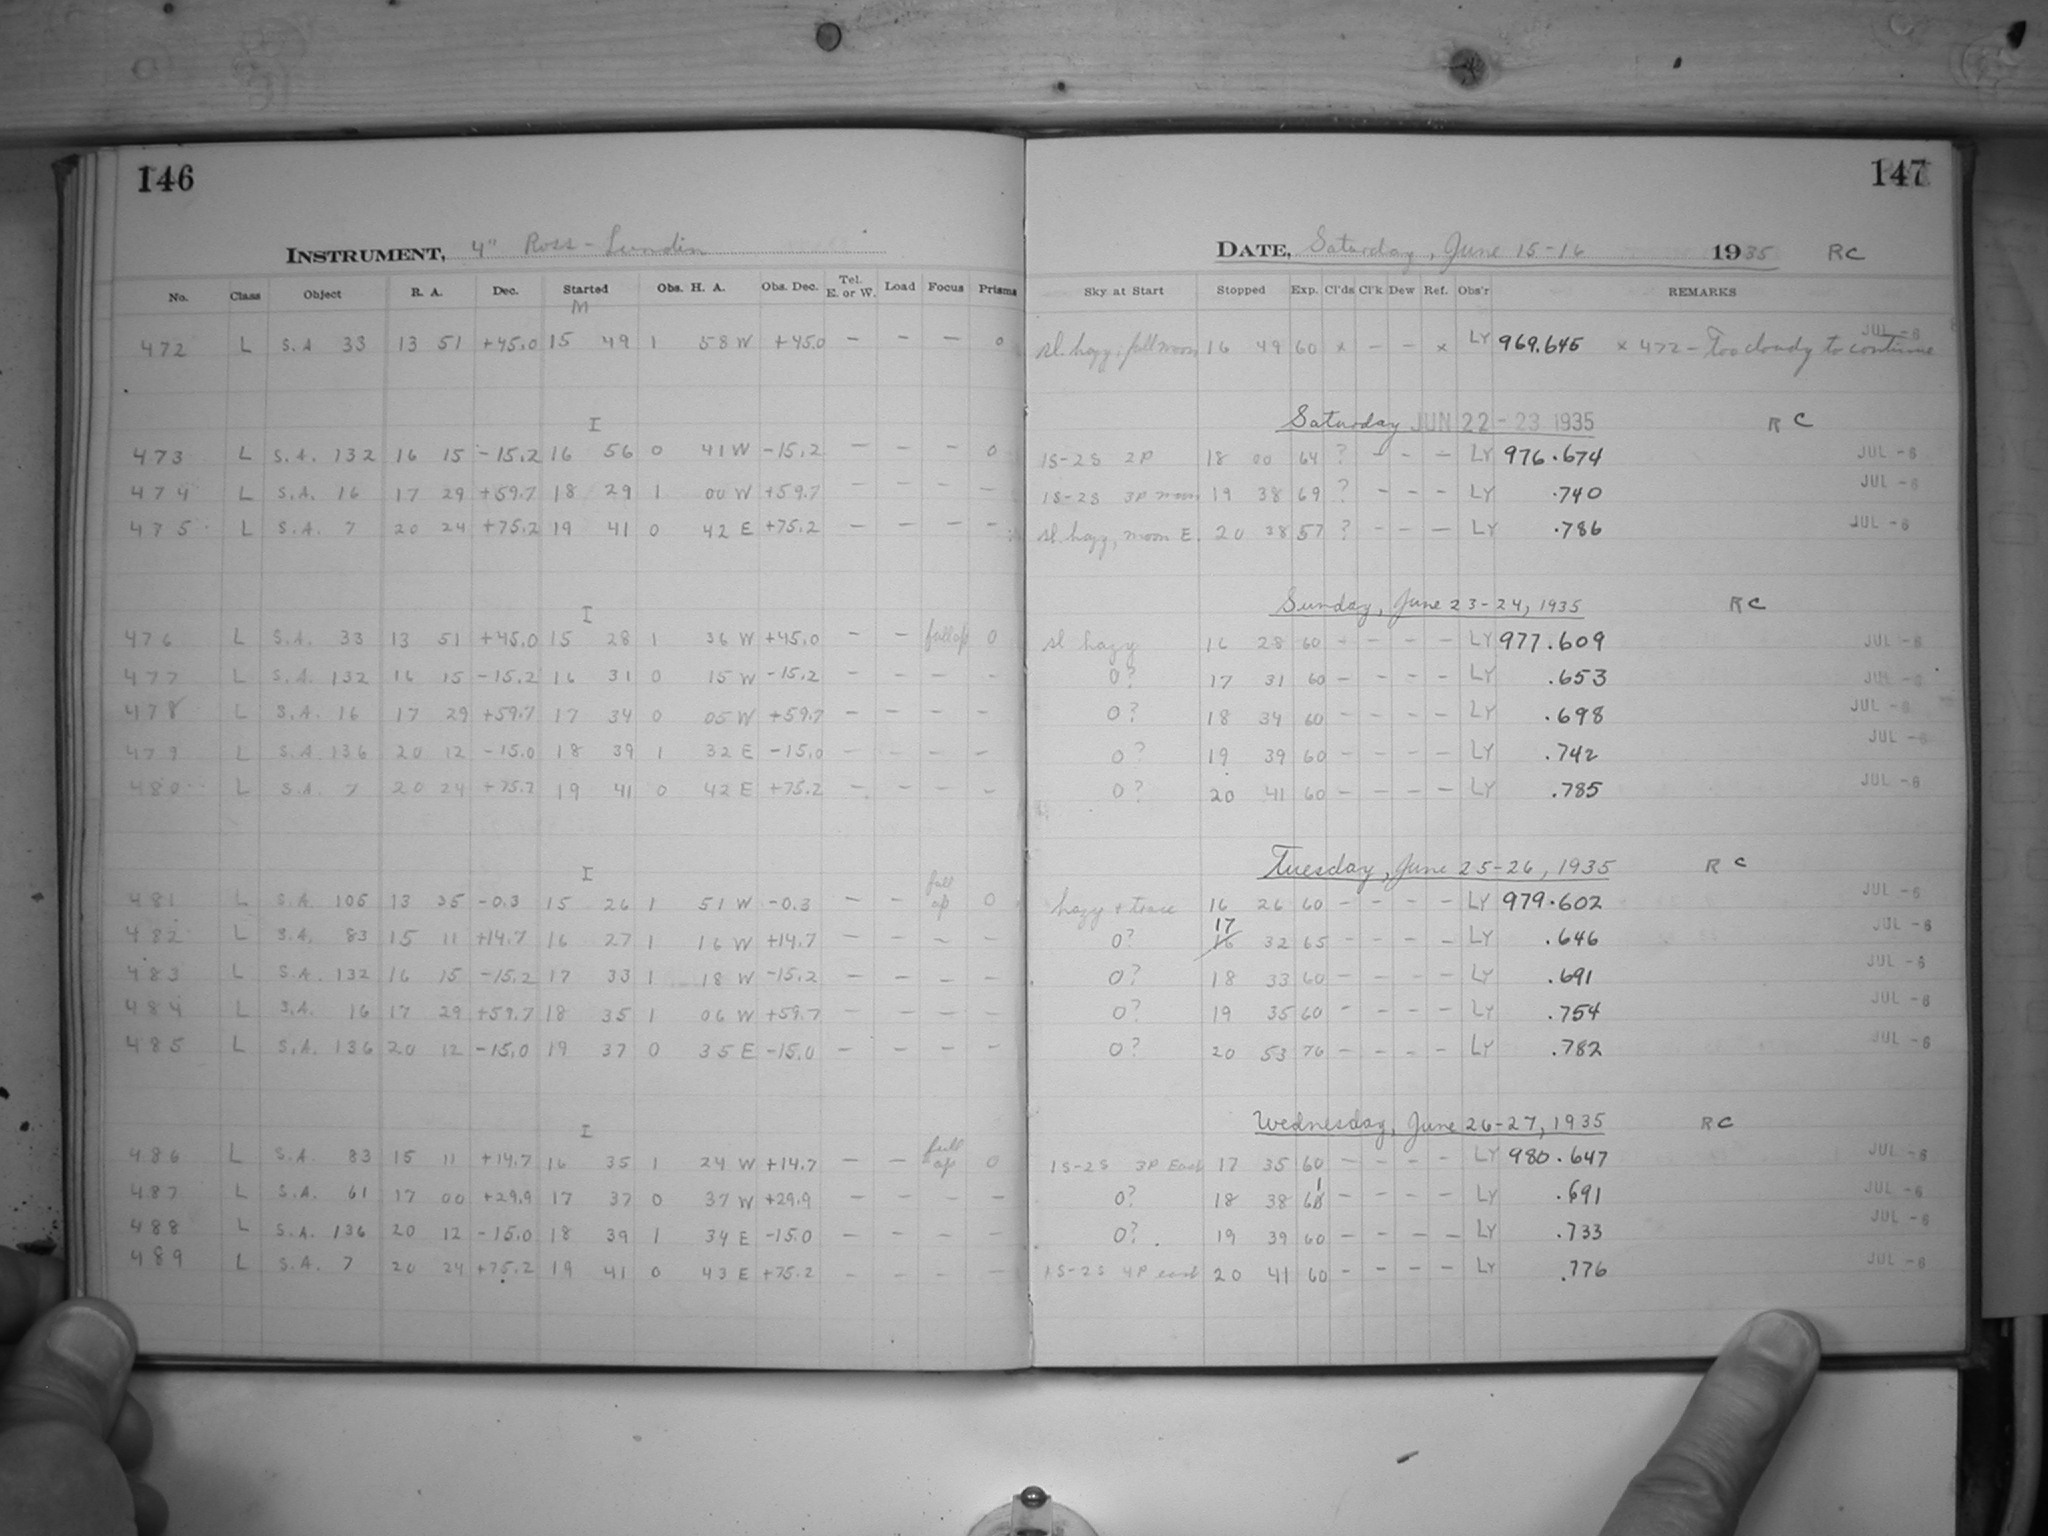 146
INSTRUMENT, 4" Ross-Lundin
No. Class Object R. A. Dec. Started Obs. H. A. Obs. Dec. Tel. E. or W. Load Focus Prisms
M
472 L S.A 33 13 51 +45.0 15 49 1 58 W +45.0 — — — 0
I
473 L S.A. 132 16 15 -15.2 16 56 0 41 W -15.2 — — — 0
474 L S.A. 16 17 29 +59.7 18 29 1 00 W +59.7 — — — —
475 L S.A. 7 20 24 +75.2 19 41 0 42 E +75.2 — — — —
I
476 L S.A. 33 13 51 +45.0 15 28 1 36 W +45.0 — — full ap 0
477 L S.A. 132 16 15 -15.2 16 31 0 15 W -15.2 — — — —
478 L S.A. 16 17 29 +59.7 17 34 0 05 W +59.7 — — — —
479 L S.A. 136 20 12 -15.0 18 39 1 32 E -15.0 — — — —
480 L S.A. 7 20 24 +75.2 19 41 0 42 E +75.2 — — — —
I
481 L S.A. 105 13 35 -0.3 15 26 1 51 W -0.3 — — full ap 0
482 L S.A. 83 15 11 +14.7 16 27 1 16 W +14.7 — — — —
483 L S.A. 132 16 15 -15.2 17 33 1 18 W -15.2 — — — —
484 L S.A. 16 17 29 +59.7 18 35 1 06 W +59.7 — — — —
485 L S.A. 136 20 12 -15.0 19 37 0 35 E -15.0 — — — —
I
486 L S.A. 83 15 11 +14.7 16 35 1 24 W +14.7 — — full ap 0
487 L S.A. 61 17 00 +29.9 17 37 0 37 W +29.9 — — — —
488 L S.A. 136 20 12 -15.0 18 39 1 34 E -15.0 — — — —
489 L S.A. 7 20 24 +75.2 19 41 0 43 E +75.2 — — — —
147
DATE, Saturday, June 15-16 1935 RC
Sky at Start Stopped Exp. Cl'ds Cl'k Dew Ref. Obs'r REMARKS
sl. hazy, full moon 16 49 60 x — — x LY 969.645 x 472 - Too cloudy to continue JUL -6
Saturday JUN 22-23 1935 RC
1S-2S 2P 18 00 64 ? — — — LY 976.674 JUL -6
1S-2S 3P moon 19 38 69 ? — — — LY .740 JUL -6
sl. hazy, moon E. 20 38 57 ? — — — LY .786 JUL -6
Sunday, June 23-24, 1935 RC
sl hazy 16 28 60 — — — — LY 977.609 JUL -6
0? 17 31 60 — — — — LY .653 JUL -6
0? 18 34 60 — — — — LY .698 JUL -6
0? 19 39 60 — — — — LY .742 JUL -6
0? 20 41 60 — — — — LY .785 JUL -6
Tuesday, June 25-26, 1935 RC
hazy + trace 16 26 60 — — — — LY 979.602 JUL -6
0? 17 32 65 — — — — LY .646 JUL -6
0? 18 33 60 — — — — LY .691 JUL -6
0? 19 35 60 — — — — LY .754 JUL -6
0? 20 53 76 — — — — LY .782 JUL -6
Wednesday, June 26-27, 1935 RC
1S-2S 3P East 17 35 60 — — — — LY 980.647 JUL -6
0? 18 38 61 — — — — LY .691 JUL -6
0? 19 39 60 — — — — LY .733 JUL -6
1S-2S 4P east 20 41 60 — — — — LY .776 JUL -6